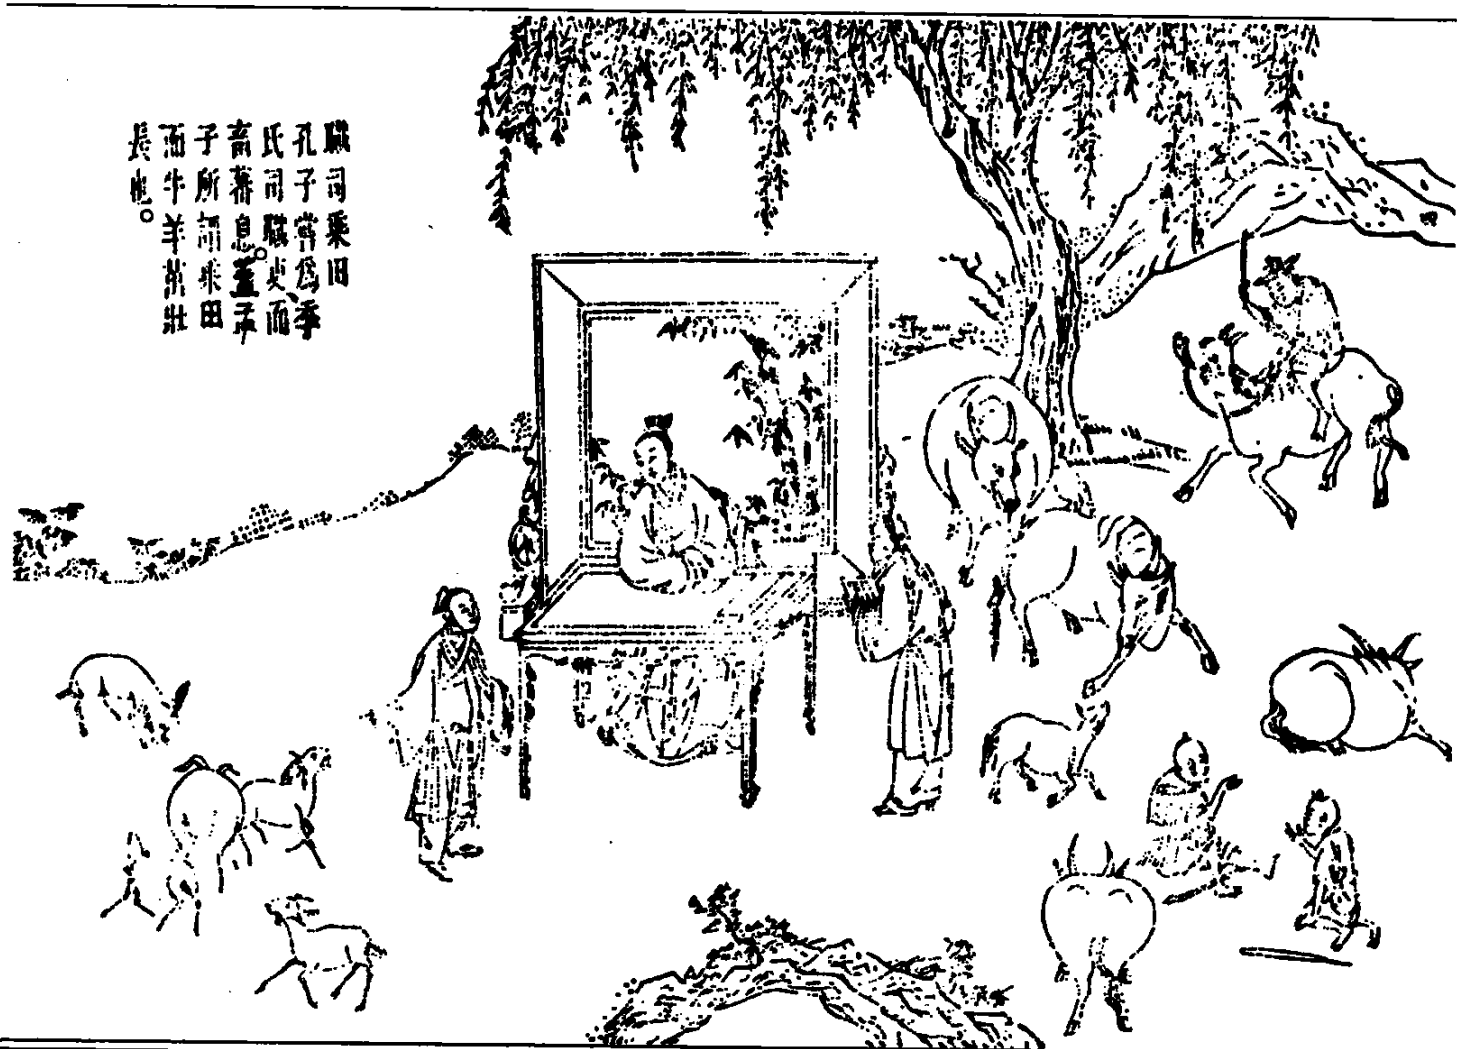 職司乘田
孔子嘗爲季
氏司職吏、而
畜蕃息。蓋孟
子所謂乘田
而牛羊茁壯
長也。